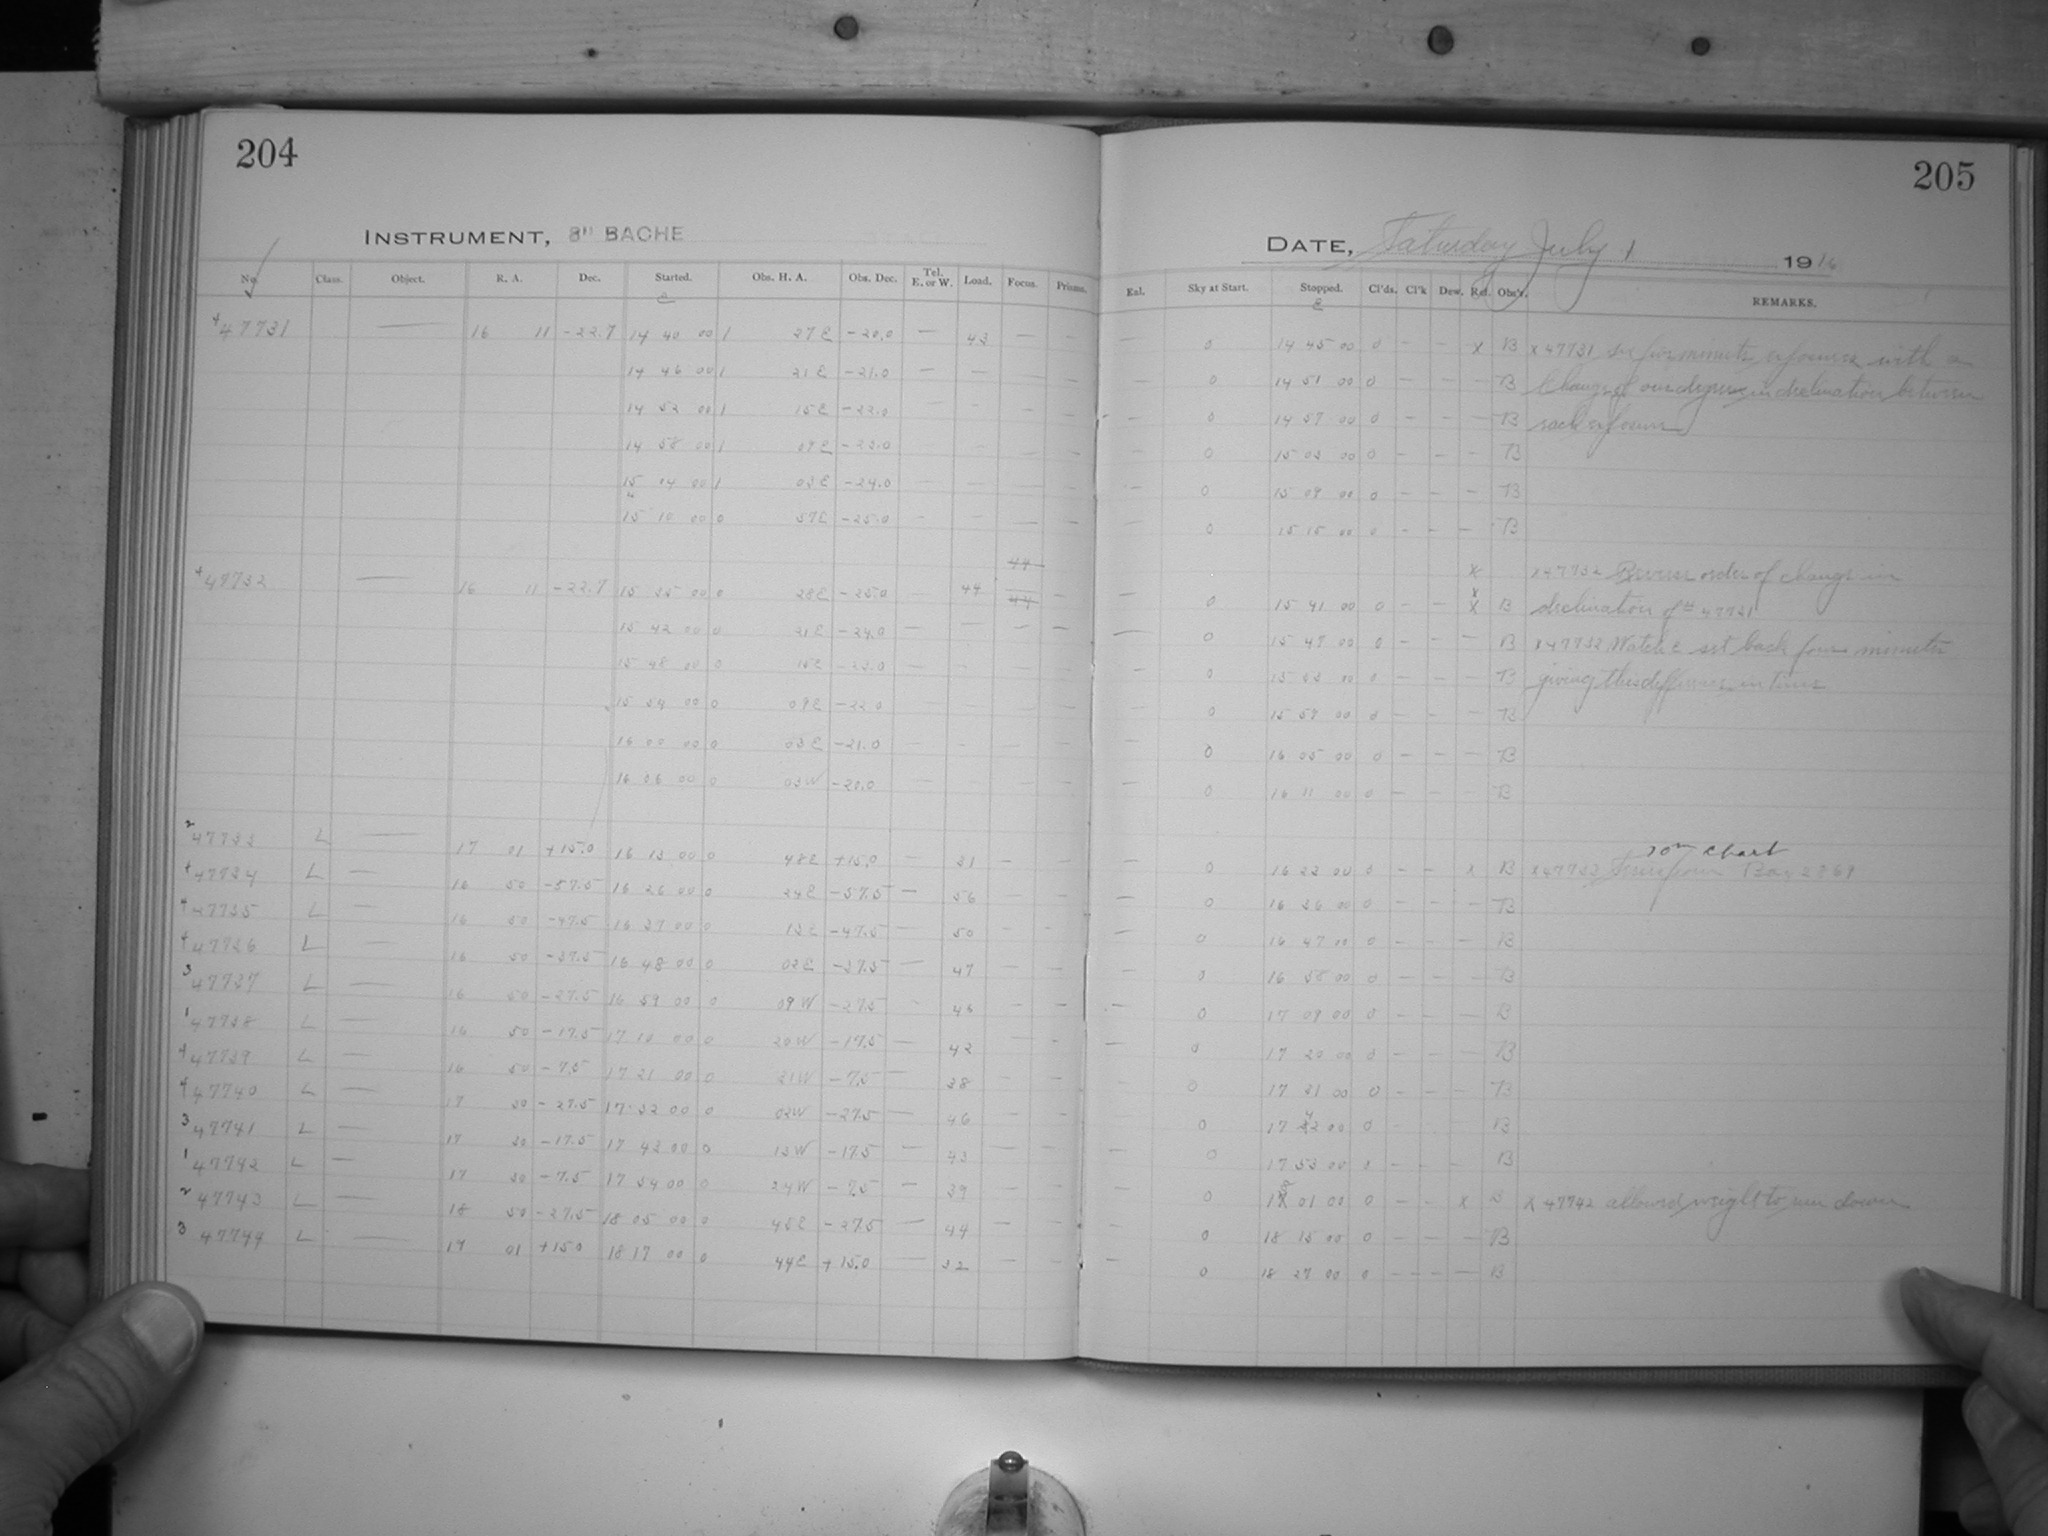 204
205
INSTRUMENT, 8" BACHE
DATE, Saturday July 1 1916
No. Class. Object. R. A. Dec. Started. Obs. H. A. Obs. Dec. Tel. E. or W. Load. Focus. Prisms. Enl. Sky at Start. Stopped. Cl'ds. Cl'k Dew. Ref. Obs'r. REMARKS.
e e
4 47731 — 16 11 -22.7 14 40 00 1 27 E -20.0 — 43 — — — 0 14 45 00 0 — — x B x 47731 six five minute exposures with a
14 46 00 1 21 E -21.0 — — — — — 0 14 51 00 0 — — — B change of one degree in declination between
14 52 00 1 15 E -22.0 — — — — — 0 14 57 00 0 — — — B each exposure
14 58 00 1 09 E -23.0 — — — — — 0 15 03 00 0 — — — B
15 04 00 1 03 E -24.0 — — — — — 0 15 09 00 0 — — — B
15 10 00 0 57 E -25.0 — — — — — 0 15 15 00 0 — — — B
x x 47732 Reverse order of change in
4 47732 — 16 11 -22.7 15 35 00 0 28 E -25.0 — 44 — — 0 15 41 00 0 — — x x B declination of # 47731
15 42 00 0 21 E -24.0 — — — — — 0 15 47 00 0 — — — B x 47732 Watch e set back four minutes
15 48 00 0 15 E -23.0 — — — — — 0 15 53 00 0 — — — B giving this difference in time
15 54 00 0 09 E -22.0 — — — — — 0 15 59 00 0 — — — B
16 00 00 0 03 E -21.0 — — — — — 0 16 05 00 0 — — — B
16 06 00 0 03 W -20.0 — — — — — 0 16 11 00 0 — — — B
10m chart
2 47733 L — 17 01 +15.0 16 13 00 0 48 E +15.0 — 31 — — — 0 16 23 00 0 — — x B x 47733 Bay 2869
4 47734 L — 16 50 -57.5 16 26 00 0 24 E -57.5 — 56 — — — 0 16 36 00 0 — — — B
4 47735 L — 16 50 -47.5 16 37 00 0 13 E -47.5 — 50 — — — 0 16 47 00 0 — — — B
4 47736 L — 16 50 -37.5 16 48 00 0 02 E -37.5 — 47 — — — 0 16 58 00 0 — — — B
3 47737 L — 16 50 -27.5 16 59 00 0 09 W -27.5 — 45 — — — 0 17 09 00 0 — — — B
1 47738 L — 16 50 -17.5 17 10 00 0 20 W -17.5 — 42 — — — 0 17 20 00 0 — — — B
4 47739 L — 16 50 -7.5 17 21 00 0 31 W -7.5 — 38 — — — 0 17 31 00 0 — — — B
4 47740 L — 17 30 -27.5 17 32 00 0 02 W -27.5 — 46 — — — 0 17 42 00 0 — — — B
3 47741 L — 17 30 -17.5 17 43 00 0 13 W -17.5 — 43 — — — 0 17 53 00 0 — — — B
1 47742 L — 17 30 -7.5 17 54 00 0 24 W -7.5 — 39 — — — 0 18 01 00 0 — — x B x 47742 allowed weight to run down
2 47743 L — 18 50 -27.5 18 05 00 0 45 E -27.5 — 44 — — — 0 18 15 00 0 — — — B
3 47744 L — 19 01 +15.0 18 17 00 0 44 E +15.0 — 32 — — — 0 18 27 00 0 — — — B